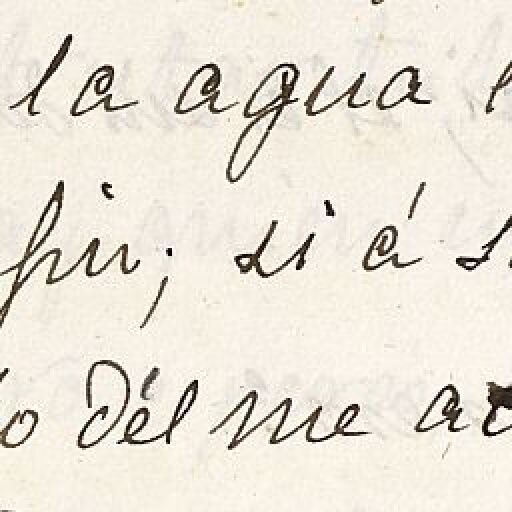 la agua
fin; si á
dél me